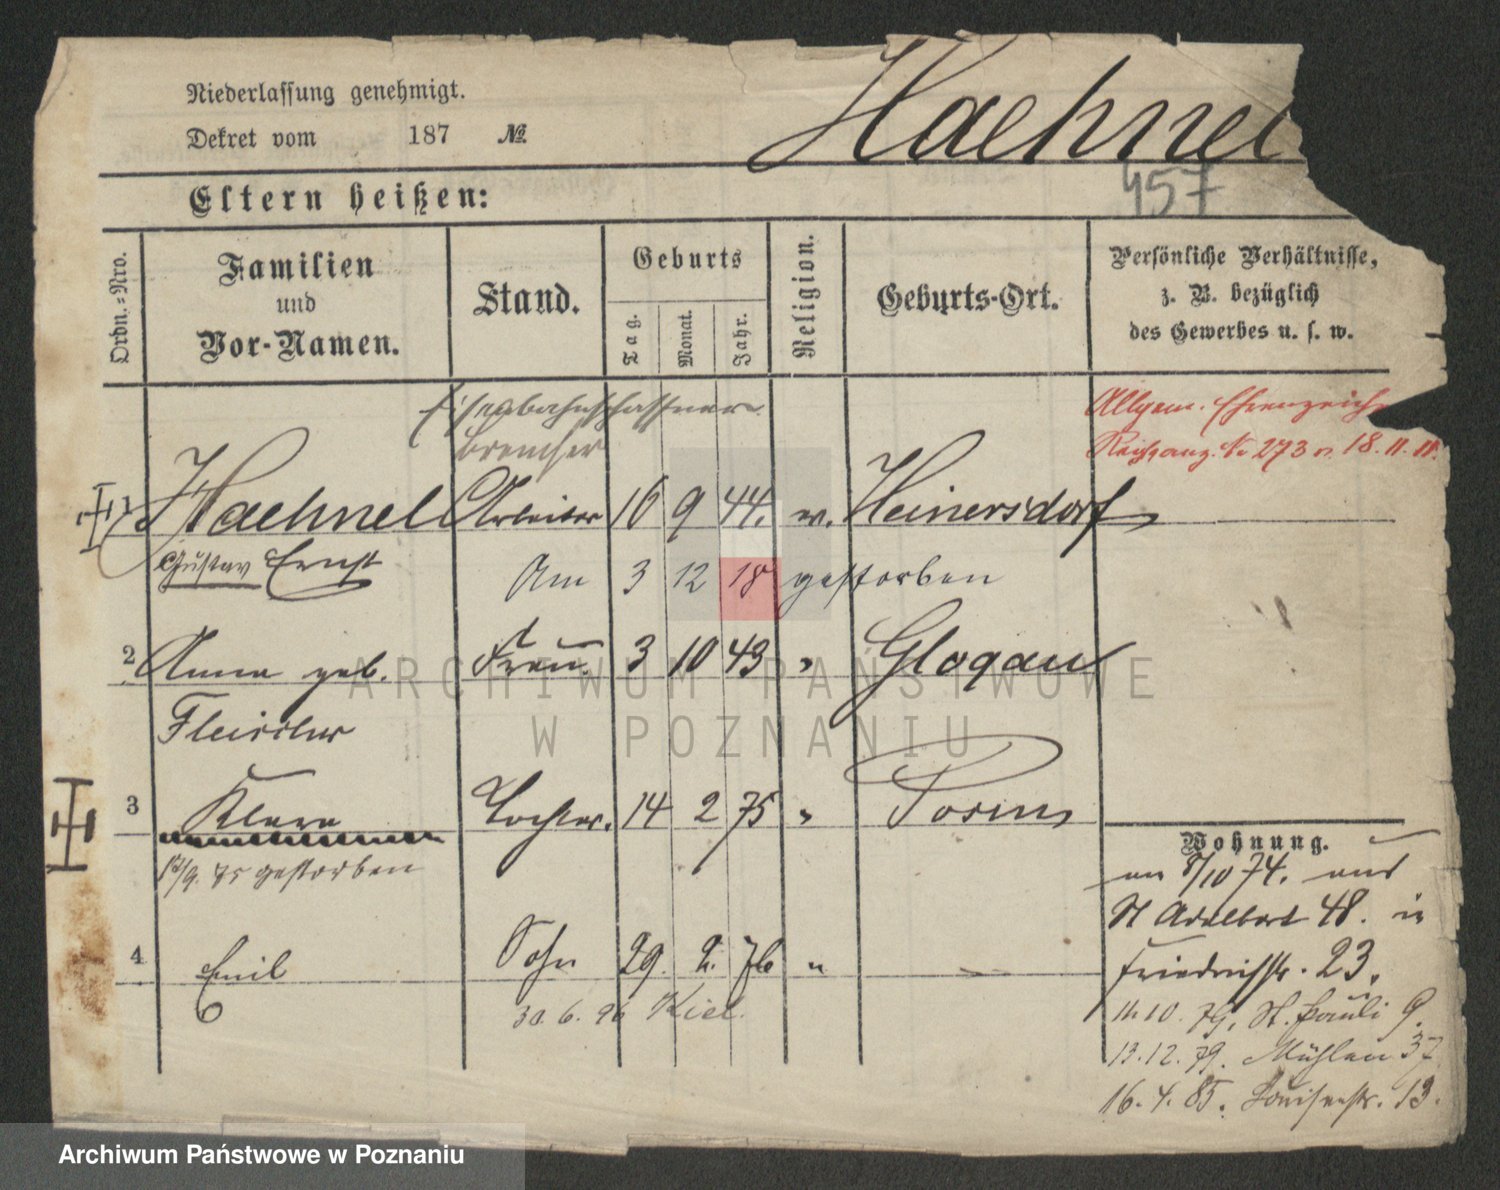 Niederlassung genehmigt.
Dekret vom 187 №
Haehnel
457
Eltern heißen:
Ordn.=Nro.
Familien
und
Vor-Namen.
Stand.
Geburts
Tag.
Monat.
Jahr.
Religion.
Geburts-Ort.
Persönliche Verhältnisse,
z. B. bezüglich
des Gewerbes u. s. w.
Eisenbahnschaffner
Bremser
Allgem. Ehrenzeich
Reichsanz. No 273 v. 18. 11.
Haehnel Arbeiter 16 9 44. ev. Heinersdorf
Gustav Ernst
Am 3 12 18 gestorben
2 Anna geb. Frau. 3 10 43 " Glogau
Fleischer
3 Klara Tochter. 14 2 75 " Posen
12/9. 75 gestorben
4 Emil Sohn 29. 2. 76 " —
30. 6. 96 Kiel.
Wohnung.
am 8/10 74. aus
St Adalbert 48. in
Friedrichstr. 23.
11.10. 79. St. Pauli 9.
13.12.79. Mühlen 37
16. 4. 85. Louisenstr. 13.
ARCHIWUM PAŃSTWOWE
W POZNANIU
Archiwum Państwowe w Poznaniu